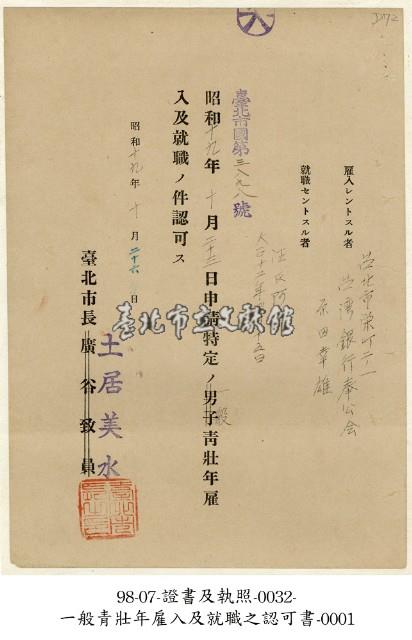 D172
臺北市國第三八九八號
雇入レントスル者
臺北市榮町二ノ一
臺灣銀行奉公会
原田幸雄
就職セントスル者
汪氏阿
昭和十九年十月二十三日申請特定ノ男子青壯年雇
一般
入及就職ノ件認可ス
昭和十九年十月二十六日
臺北市長廣谷致員
土居美水
臺北市長之印
臺北市立文獻館
98-07-證書及執照-0032-
一般青壯年雇入及就職之認可書-0001